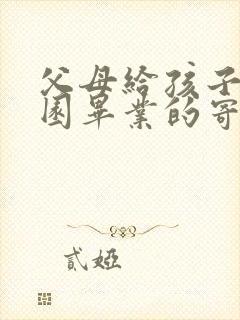 父母給孩子
園畢業的寄
貳婭